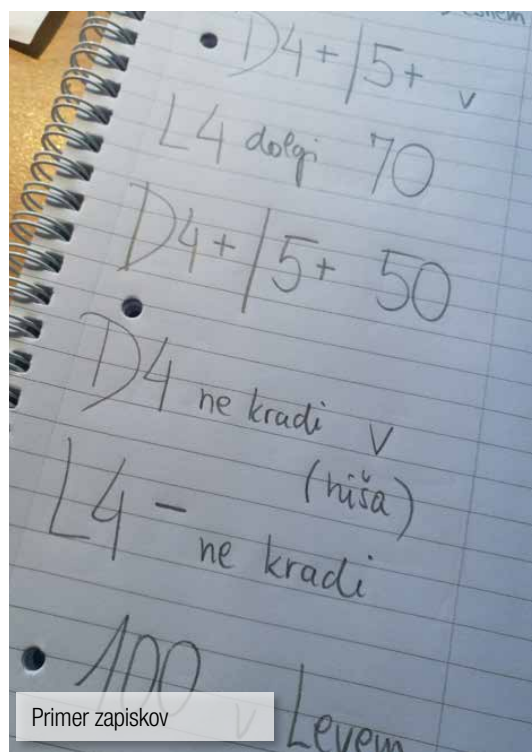 D4+/5+ v
L4 dolgi 70
D4+/5+ 50
D4 ne kradi v
(hiša)
L4 - ne kradi
100 v Levem
Primer zapiskov